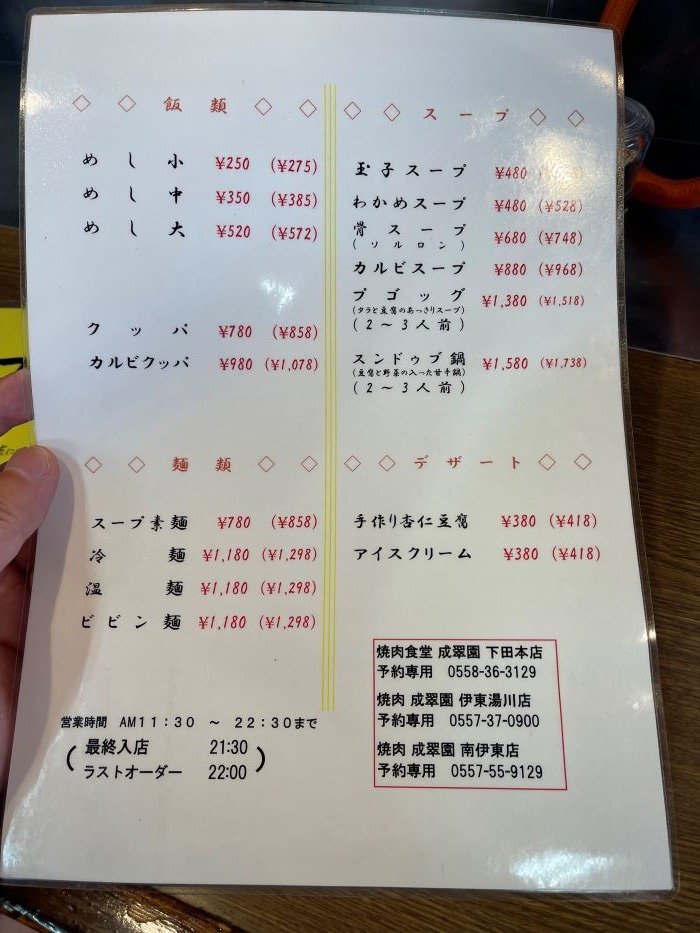 ◇ ◇ 飯類 ◇ ◇
めし小 ¥250 (¥275)
めし中 ¥350 (¥385)
めし大 ¥520 (¥572)
クッパ ¥780 (¥858)
カルビクッパ ¥980 (¥1,078)
◇ ◇ 麺類 ◇ ◇
スープ素麺 ¥780 (¥858)
冷麺 ¥1,180 (¥1,298)
温麺 ¥1,180 (¥1,298)
ビビン麺 ¥1,180 (¥1,298)
営業時間 AM11:30 ～ 22:30まで
(最終入店 21:30
ラストオーダー 22:00)
◇ ◇ スープ ◇ ◇
玉子スープ ¥480
わかめスープ ¥480 (¥528)
骨スープ ¥680 (¥748)
(ソルロン)
カルビスープ ¥880 (¥968)
プゴッグ ¥1,380 (¥1,518)
(タラと豆腐のあっさりスープ)
(2～3人前)
スンドゥブ鍋 ¥1,580 (¥1,738)
(豆腐と野菜の入った甘辛鍋)
(2～3人前)
◇ ◇ デザート ◇ ◇
手作り杏仁豆腐 ¥380 (¥418)
アイスクリーム ¥380 (¥418)
焼肉食堂 成翠園 下田本店
予約専用 0558-36-3129
焼肉 成翠園 伊東湯川店
予約専用 0557-37-0900
焼肉 成翠園 南伊東店
予約専用 0557-55-9129